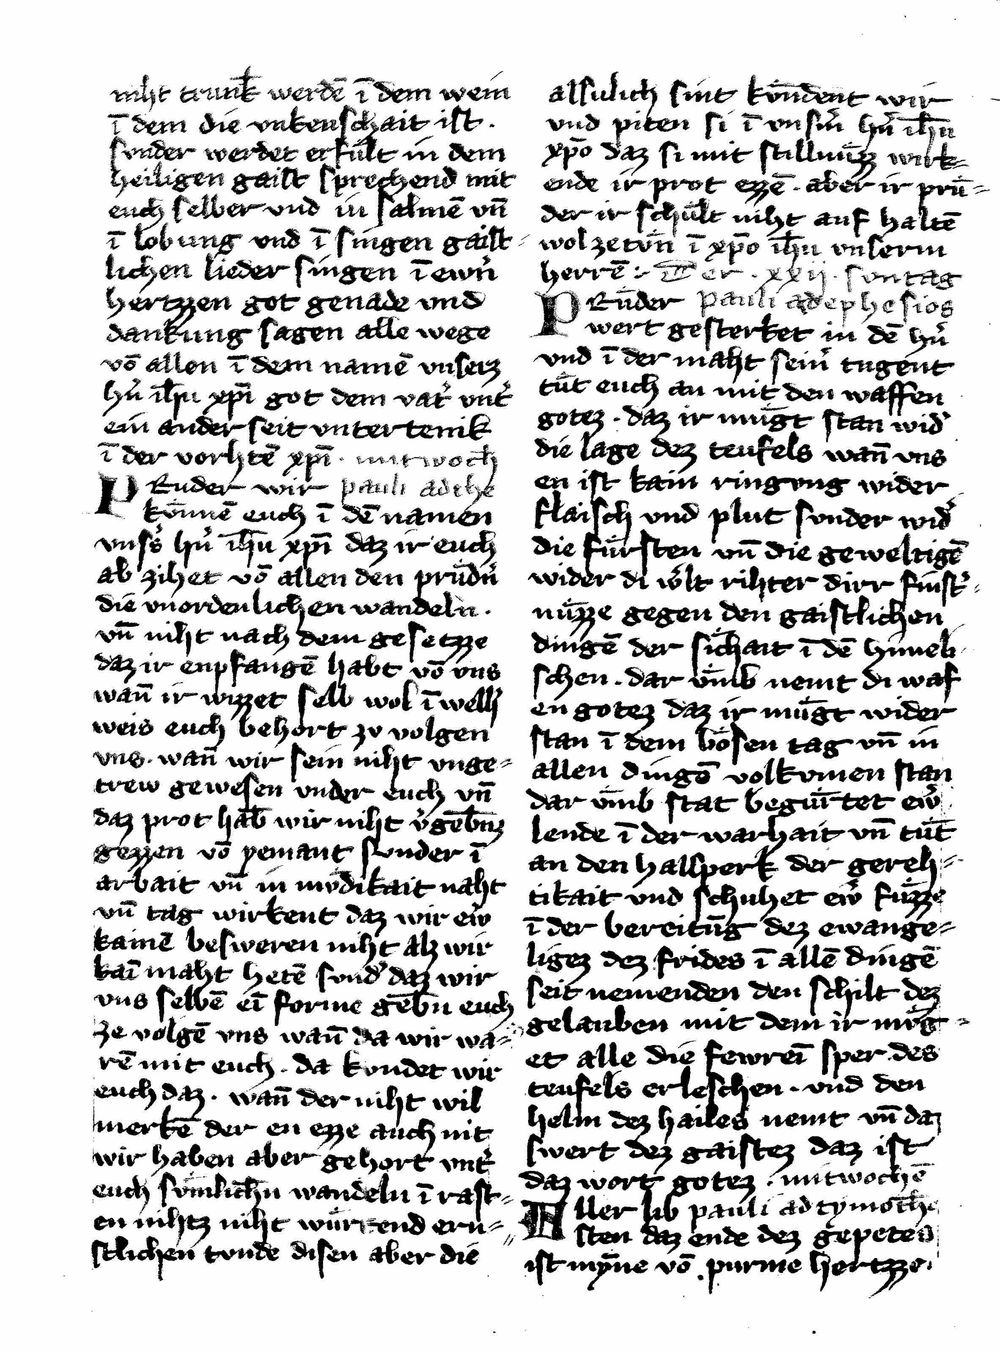 niht trunk̄ werdē ī dem wein
ī dem die vnkenschait ist ·
sunder werdet erfült in dem
heiligen gaist sprechend mit
euch selber vnd in salmē vn̄
ī lobung vnd ī singen gaist-
lichen lieder singen ī ewrn̄
hertzzen got genade vnd
dankung sagen alle wege
vō allen ī dem namē vnserz
hr̄n ih̄u xp̄i got dem vat̓ vnt̓
ein ander seit vntertenik
ī der vorhtē xp̄i · mitwoch
PRuder wir pauli ad the
kūnnē euch ī dē namen
vnss̓ hr̄n ih̄u xp̄i daz ir euch
ab zihet vō allen den prüdn̓
die vnordenlichen wandeln ·
vn̄ niht nach dem gesetzze
daz ir enpfangē habt vō vns
wan̄ ir wizzet selb wol ī well̓
weis euch behort zv volgen
vns · wan̄ wir sein niht vnge-
trew gewesen vnder euch vn̄
daz prot hab wir niht v̓gebn̄z
gezzen vō yemant sunder ī
arbait vn̄ in mv̈dikait naht
vn̄ tag wirkent daz wir ew̓
kainē besweren niht alz wir
kaī maht hetē sund̓ daz wir
vns selbē eī forme gebn̄ euch
ze volgē vns wan̄ da wir wa-
rē mit euch · da kvndet wir
euch daz · wan̄ der niht wil
merkē der en ezze auch nit
wir haben aber gehort vnt̓
euch sv̈mlichn̄ wandeln ī rast-
en nihtz niht würkend ern-
stlichen tvnde disen aber die
alsulich sint kvn̄dent wir
vnd piten si ī vnsm̓ hr̄n ih̄u
xp̄o daz si mit stillnüzz wirk-
ende ir prot ezzē · aber ir prü-
der ir schült niht auf haltē
wol zetvn̄ ī xp̄o ih̄u vnserm
herrē · Der · xxij · svntag
PRüder pauli ad ephesios
wert gesterket in dē hr̄n
vnd ī der maht sein̓ tugent
tüt euch an mit den waffen
gotez · daz ir mügt stan wid̓
die lage dez teufels wan̄ vns
en ist kain ringvng wider
flaisch vnd plut svnder wid̓
die fürsten vn̄ die geweltigē
wider di w̓lt rihter dirr finst̓-
nüzze gegen den gaistlichen
dingē der sichait ī dē himeli-
schen · dar vm̄b nemt di waf
en gotez daz ir mügt wider
stan ī dem bösen tag vn̄ in
allen dingē volkvmen stan
dar vm̄b stat begürtet ew̓
lende ī der warhait vn̄ tüt
an den halsperk der gereh-
tikait vnd schuhet ew̓ füzze
ī der bereitūg dez ewange-
ligez dez frides ī allē dingē
seit nemenden den schilt dez
gelauben mit dem ir mv̈g-
et alle die fewreī sper · des
teufels erleschen · vnd den
helm dez hailes nemt vn̄ daz
swert dez gaistez daz ist
daz wort gotez · mitwochē
Aller lib pauli ad tymoth̄e
sten daz ende dez gepetes
ist myn̄e vō purme hertzze ·